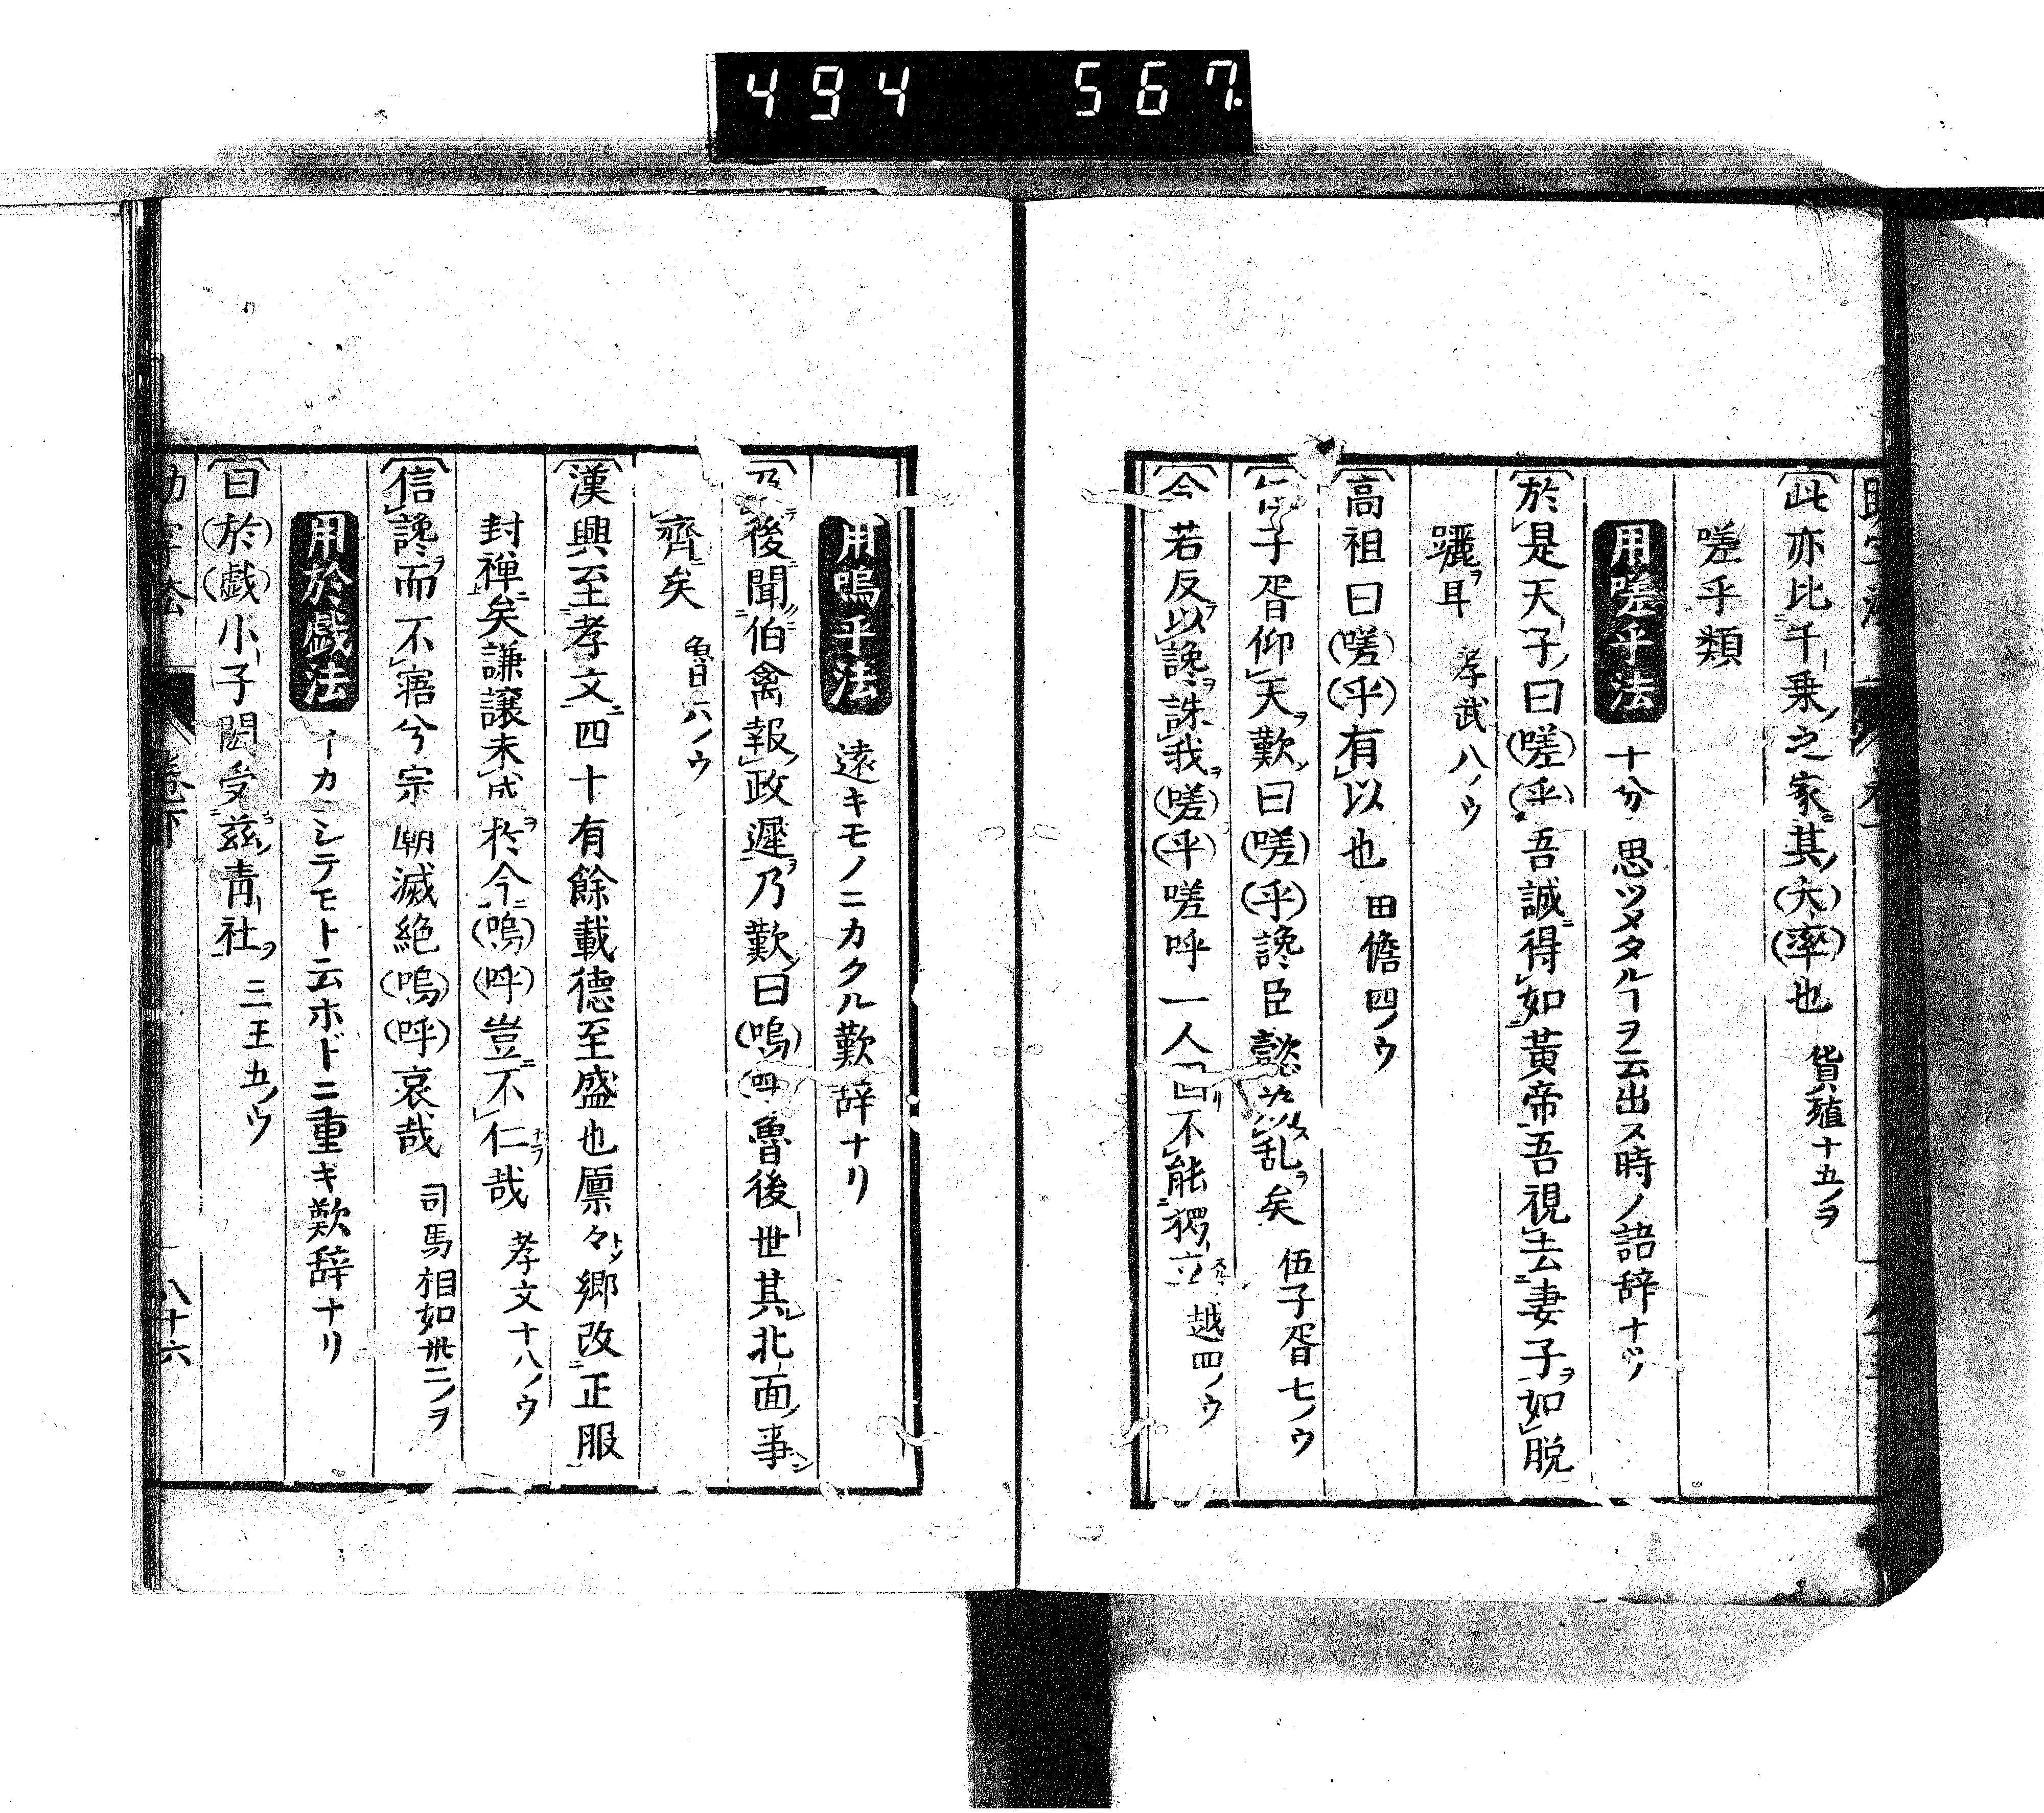 494 567
此亦比千乗之家其(大)(率)也 貨殖十五ノヲ
嗟乎類
用嗟乎法 十分思ツメタルヿヲ云出ス時ノ語辞ナリ
於是天子曰(嗟)(乎)吾誠得如黄帝吾視去妻子如脱
躧耳 孝武八ノウ
高祖曰(嗟)(乎)有以也 田儋四ノウ
子胥仰天歎曰(嗟)(乎)讒臣嚭為乱矣 伍子胥七ノウ
今若反以讒誅我(嗟)(乎)嗟呼一人固不能獨立 越四ノウ
用嗚乎法 遠キモノニカクル歎辞ナリ
後聞伯禽報政遲乃歎曰(嗚)(呼)魯後世其北面事
齊矣 魯日六ノウ
漢興至孝文四十有餘載德至盛也廩々郷改正服
封禅矣謙譲未成於今(嗚)(呼)豈不仁哉 孝文十八ノウ
信讒而不寤兮宗朝滅絶(嗚)(呼)哀哉 司馬相如卅二ノヲ
用於戯法 イカンシテモト云ホドニ重キ歎辞ナリ
曰(於)(戯)小子閎受茲青社 三王五ノウ
卷下
八十六